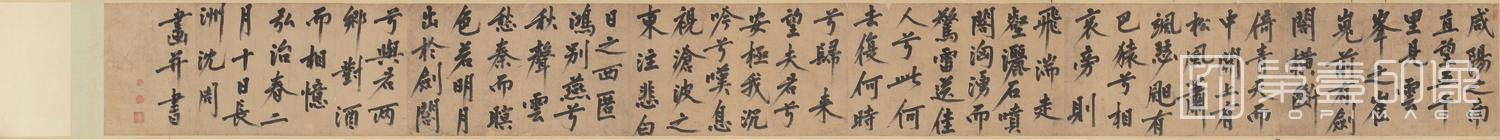 咸陽之南
直望五千
里見雲
峯之崔
嵬前有劍
閣橫斷
倚青天而
中開上有
松風蕭
颯瑟颶有
巴猿兮相
哀旁則
飛湍走
壑灑石噴
閣洶湧而
驚雷送佳
人兮此何
去復何時
兮歸来
望夫君兮
安極我沉
吟兮嘆息
視滄波之
東注悲白
日之西匿
鴻別燕兮
秋聲雲
愁秦而暝
色若明月
出於劍閣
兮與君兩
鄉對酒
而相憶
弘治春二
月十日長
洲沈周
畫并書